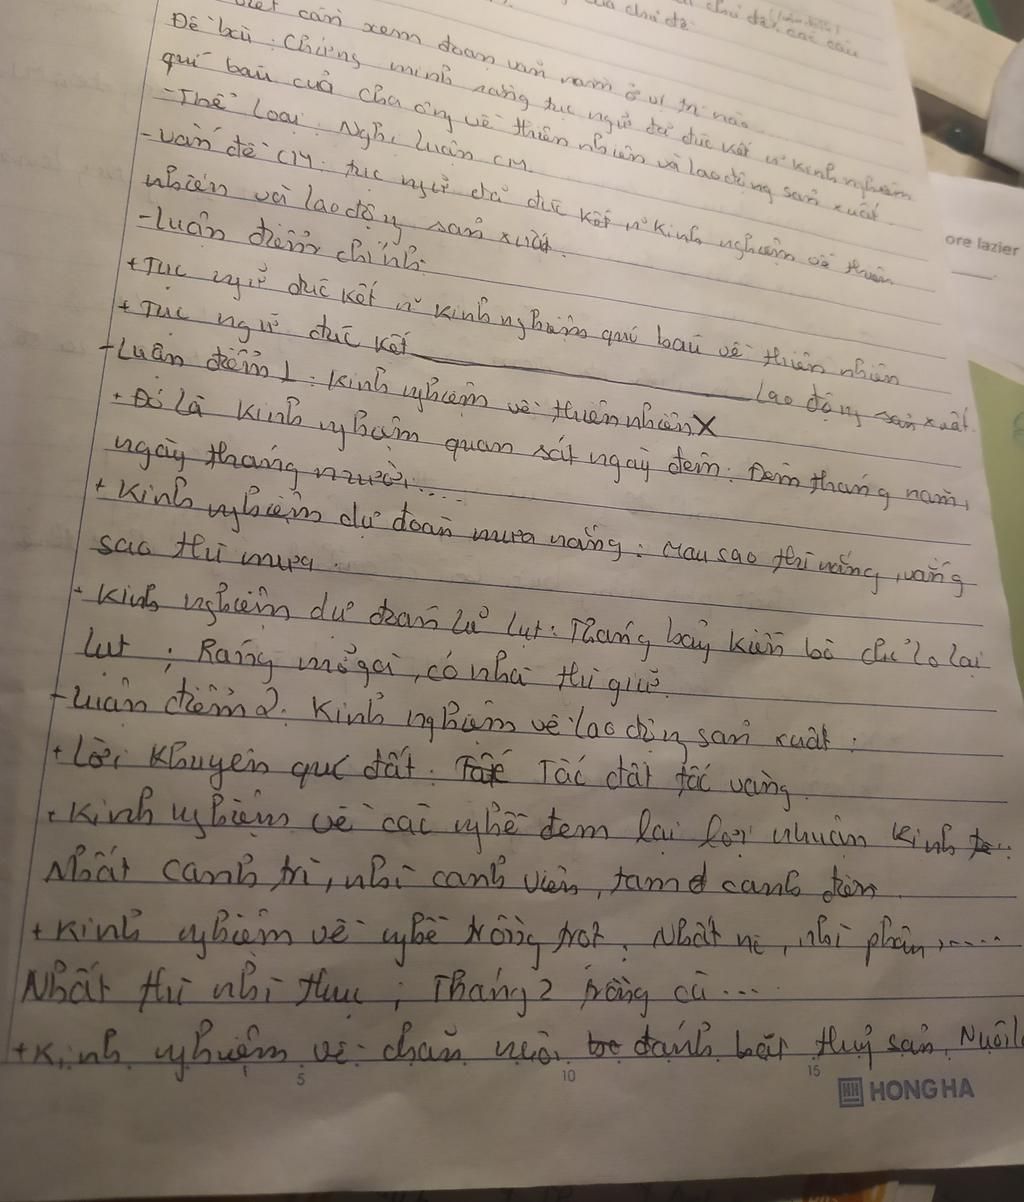 của chủ đề
chủ đề, các câu
viết cần xem đoạn văn nằm ở vị trí nào
Đề bài: Chứng minh rằng tục ngữ đã đúc kết n~ kinh nghiệm
quí báu của cha ông về thiên nhiên và lao động sản xuất
- Thể loại: Nghị luận CM
- Vấn đề CM: tục ngữ đã đúc kết n~ kinh nghiệm về thiên
nhiên và lao động sản xuất.
- Luận điểm chính:
+ Tục ngữ đúc kết n~ kinh nghiệm quí báu về thiên nhiên
+ Tục ngữ đúc kết lao động sản xuất
- Luận điểm 1: Kinh nghiệm về thiên nhiên X
+ Đó là kinh nghiệm quan sát ngày đêm: Đêm tháng năm,
ngày tháng mười....
+ Kinh nghiệm dự đoán mưa nắng: Mau sao thì nắng, vắng
sao thì mưa.
+ Kinh nghiệm dự đoán lũ lụt: Tháng bảy kiến bò chỉ lo lại
lụt; Ráng mỡ gà, có nhà thì giữ.
- Luận điểm 2: Kinh nghiệm về lao động sản xuất:
+ Lời khuyên quí đất: Tấc đất tấc vàng
+ Kinh nghiệm về các nghề đem lại lợi nhuận kinh tế..
Nhất canh trì, nhì canh viên, tam canh điền
+ Kinh nghiệm về nghề trồng trọt: Nhất nc, nhì phân,.....
Nhất thì nhì thục; Tháng 2 trồng cà...
+ Kinh nghiệm về chăn nuôi đánh bắt thuỷ sản, Nuôi l
5 10 15
HH HONG HA
ore lazier